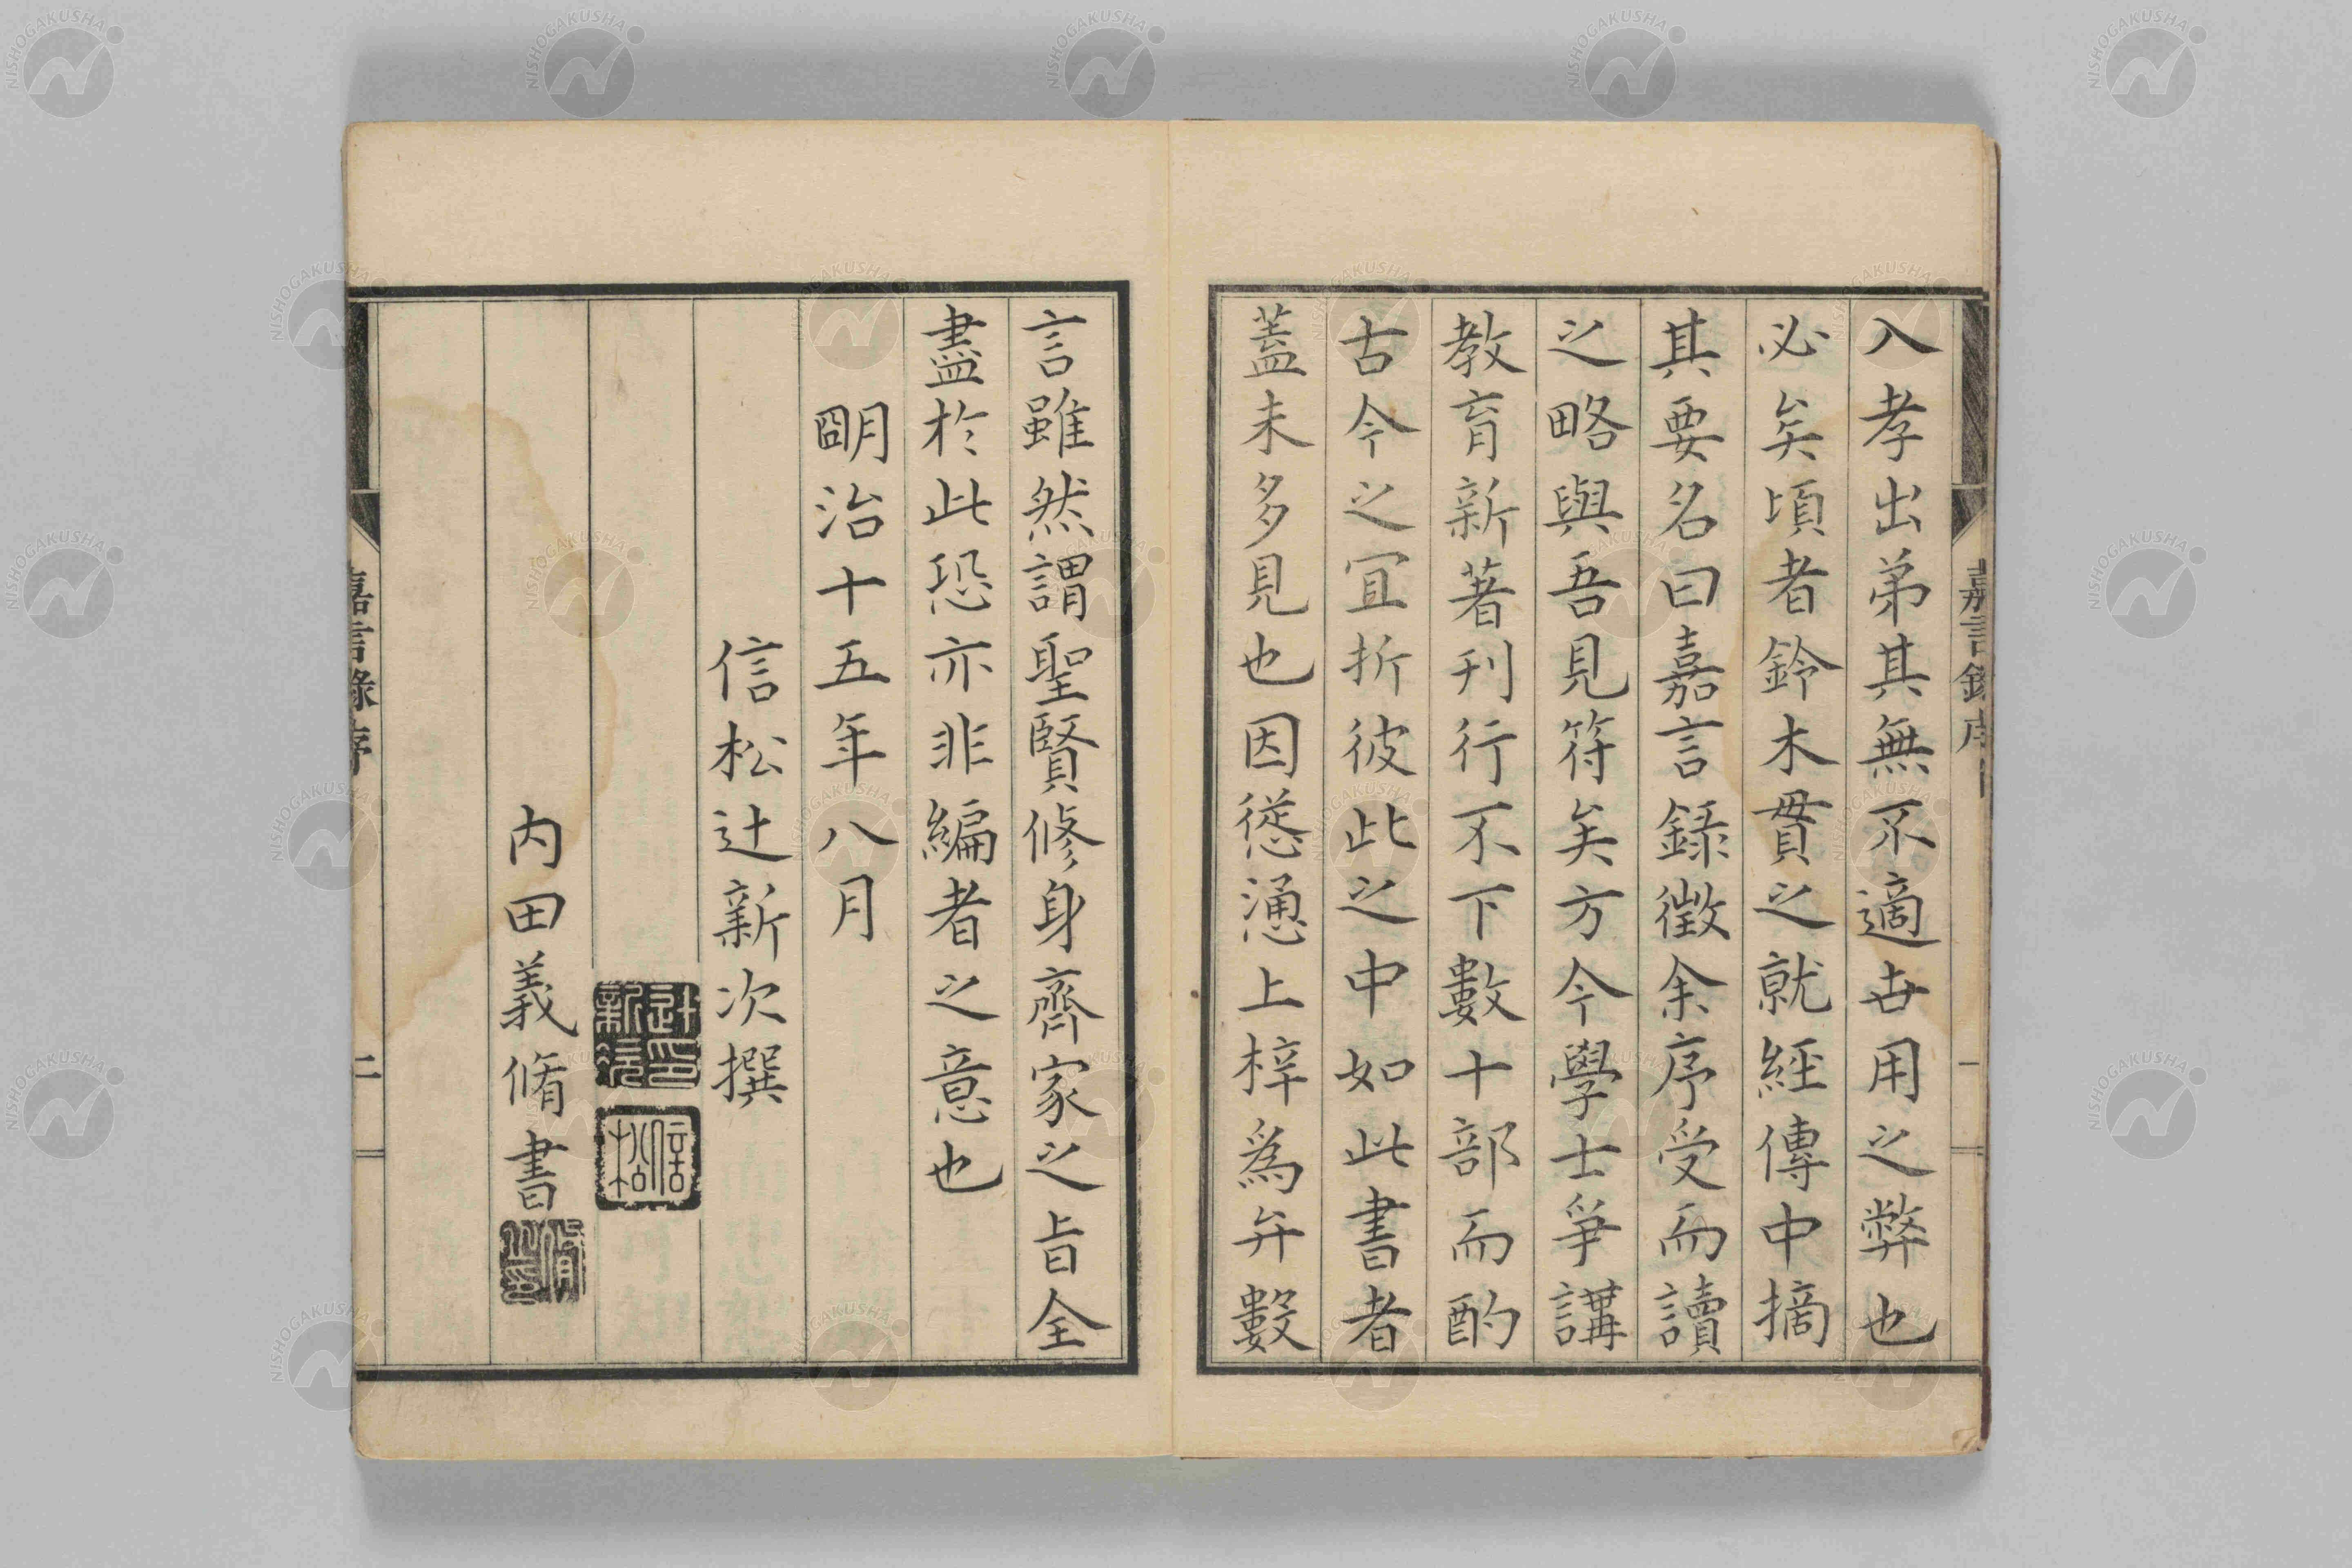 入孝出弟其無不適世用之弊也
必矣頃者鈴木貫之就經傳中摘
其要名曰嘉言録徴余序受而讀
之略與吾見符矣方今學士爭講
教育新著刊行不下數十部而酌
古今之冝折彼此之中如此書者
蓋未多見也因慫慂上梓爲弁數
言雖然謂聖賢修身齊家之旨全
盡於此恐亦非編者之意也
明治十五年八月
信松辻新次撰
辻新次印
信松
内田義脩書
脩印
嘉言録序
一
嘉言録序
二
NISHOGAKUSHA